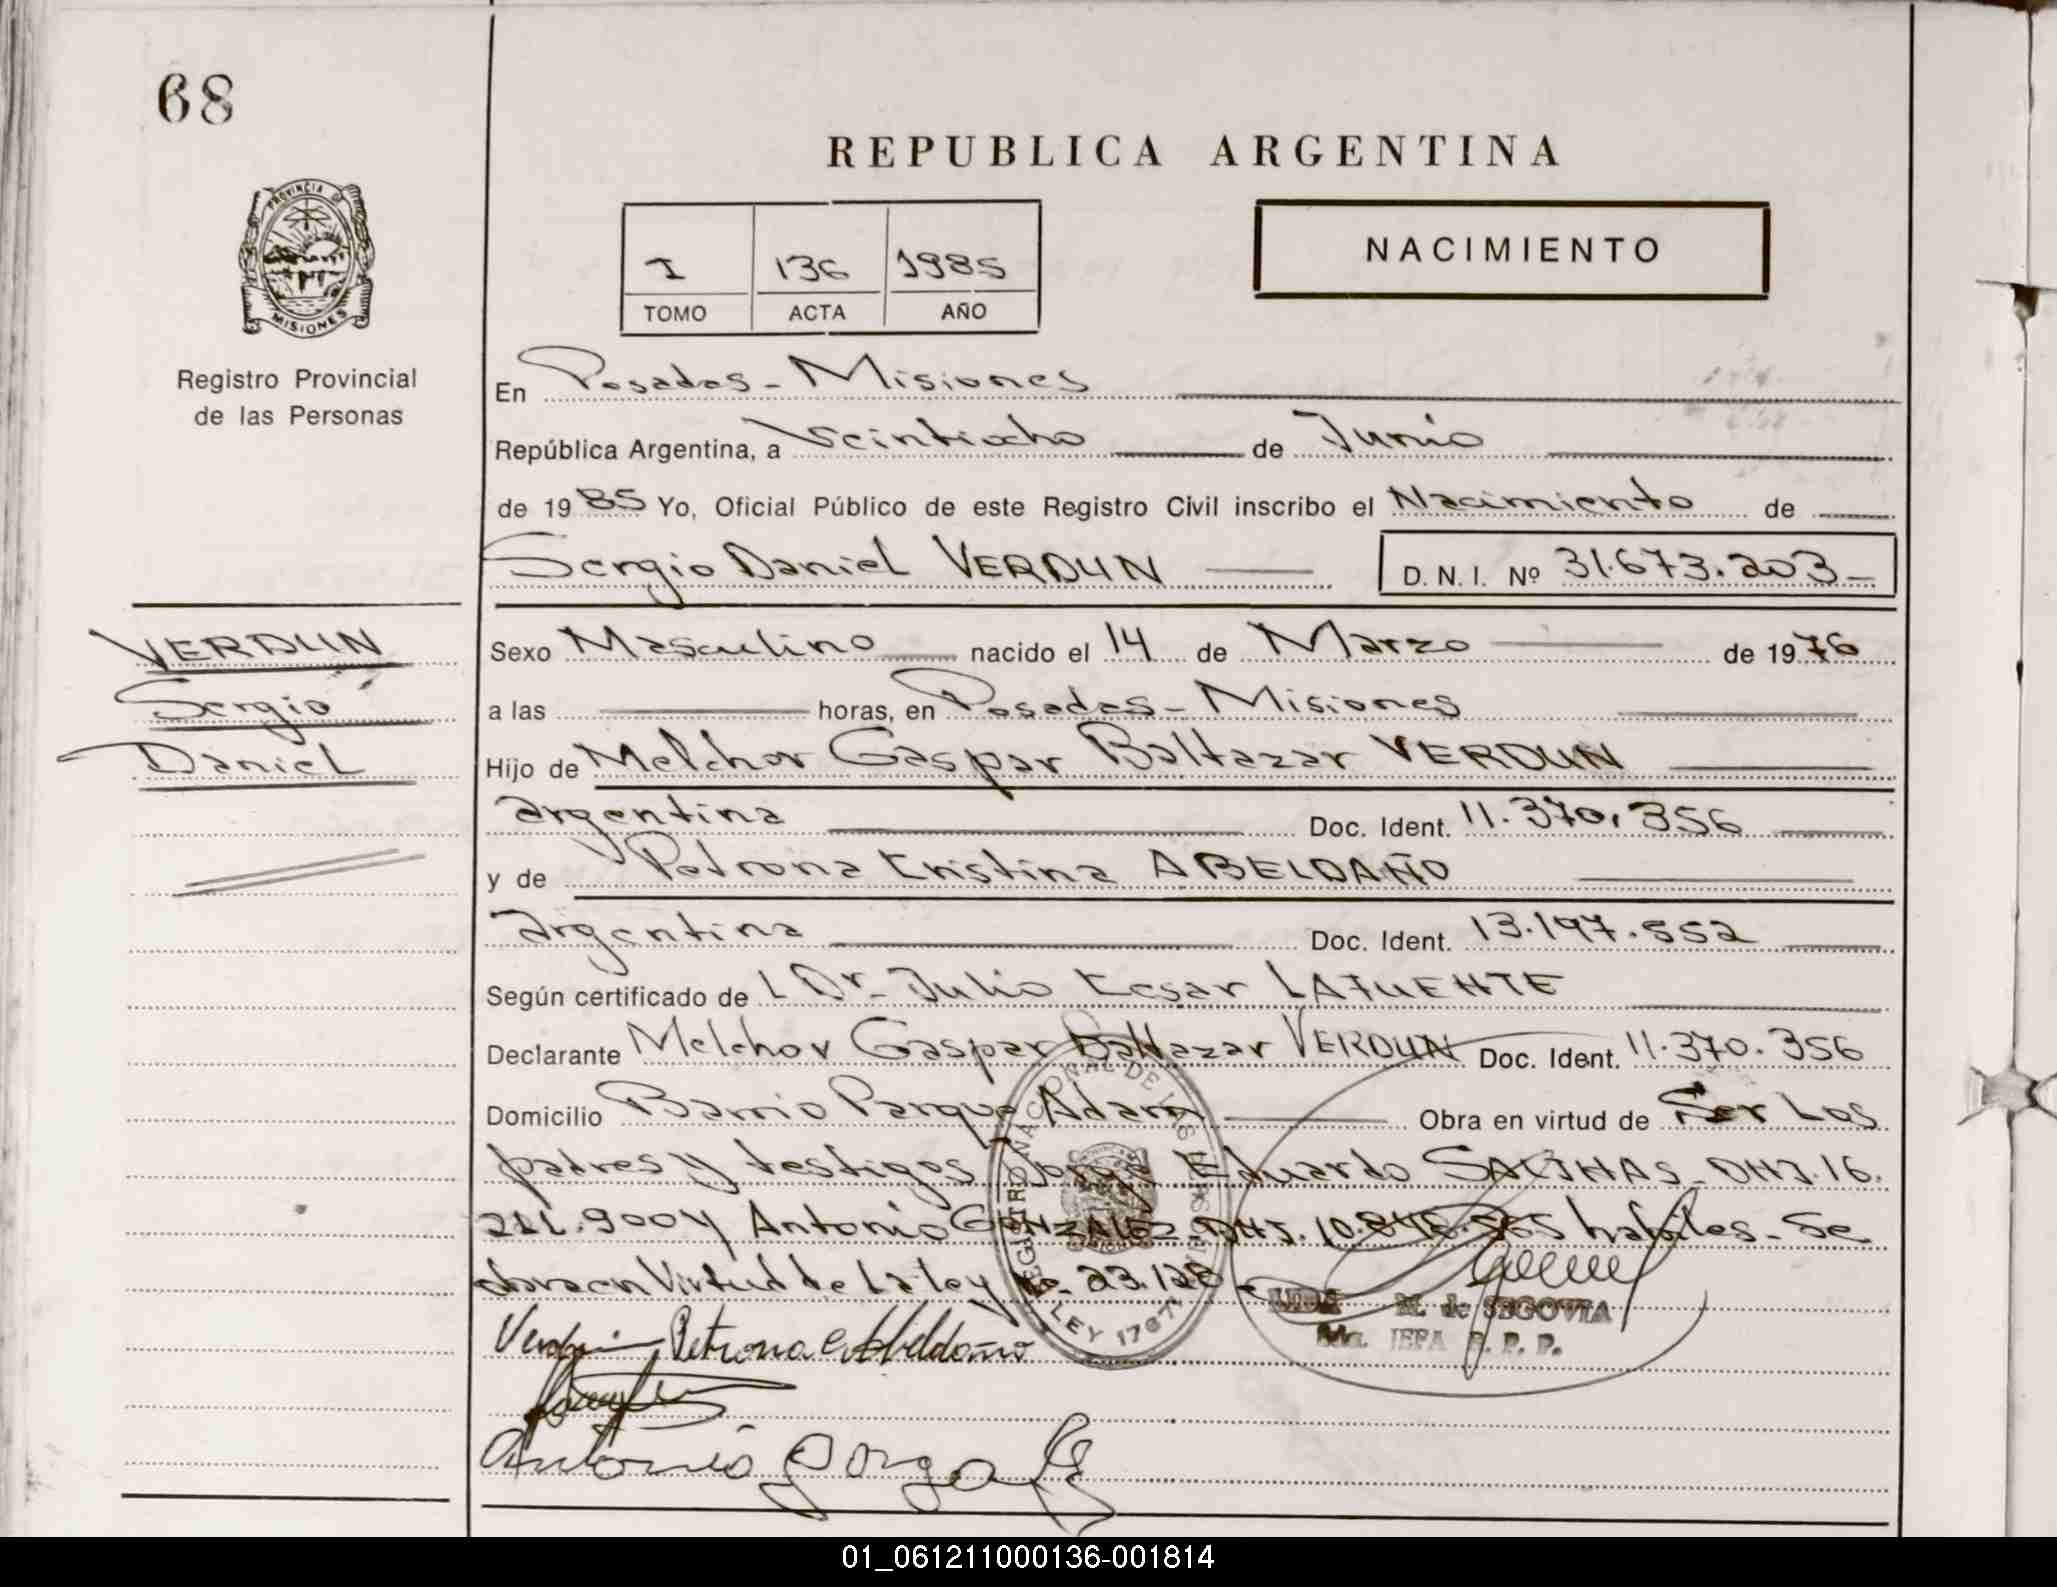 68
REPUBLICA ARGENTINA
PROVINCIA DE
MISIONES
Registro Provincial
de las Personas
I 136 1985
TOMO ACTA AÑO
NACIMIENTO
En Posadas - Misiones
República Argentina, a Veintiocho de Junio
de 1985 Yo, Oficial Público de este Registro Civil inscribo el Nacimiento de
Sergio Daniel VERDUN D. N. I. Nº 31.673.203
VERDUN
Sergio
Daniel
Sexo Masculino nacido el 14 de Marzo de 1976
a las horas, en Posadas - Misiones
Hijo de Melchor Gaspar Baltazar VERDUN
argentina Doc. Ident. 11.370.356
y de Petrona Cristina ABELDAÑO
argentina Doc. Ident. 13.197.552
Según certificado de L Dr. Julio Cesar LAFUENTE
Declarante Melchor Gaspar Baltazar VERDUN Doc. Ident. 11.370.356
Domicilio Barrio Parque Adam Obra en virtud de Ser Los
padres y testigos Jorge Eduardo SALINAS - DNI. 16.
900 y Antonio GONZALEZ - DNI. 10. 565 habiles - Se
labra en Virtud de La Ley No. 23.128 -
REGISTRO NACIONAL DE LAS
LEY 17671
LIDA M. de SEGOVIA
JEFA R. P. P.
Verdun Petrona C Abeldaño
Antonio Gonzalez
01_061211000136-001814